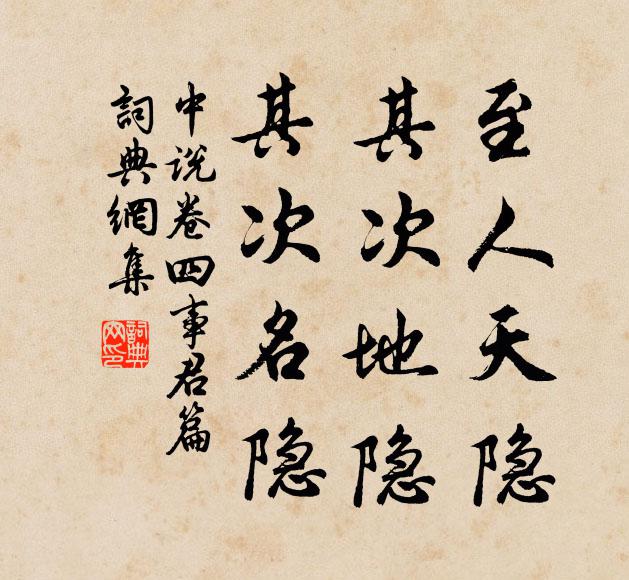 至人天隐
其次地隐
其次名隐
中说卷四事君篇
詞典網集
詞典
网印